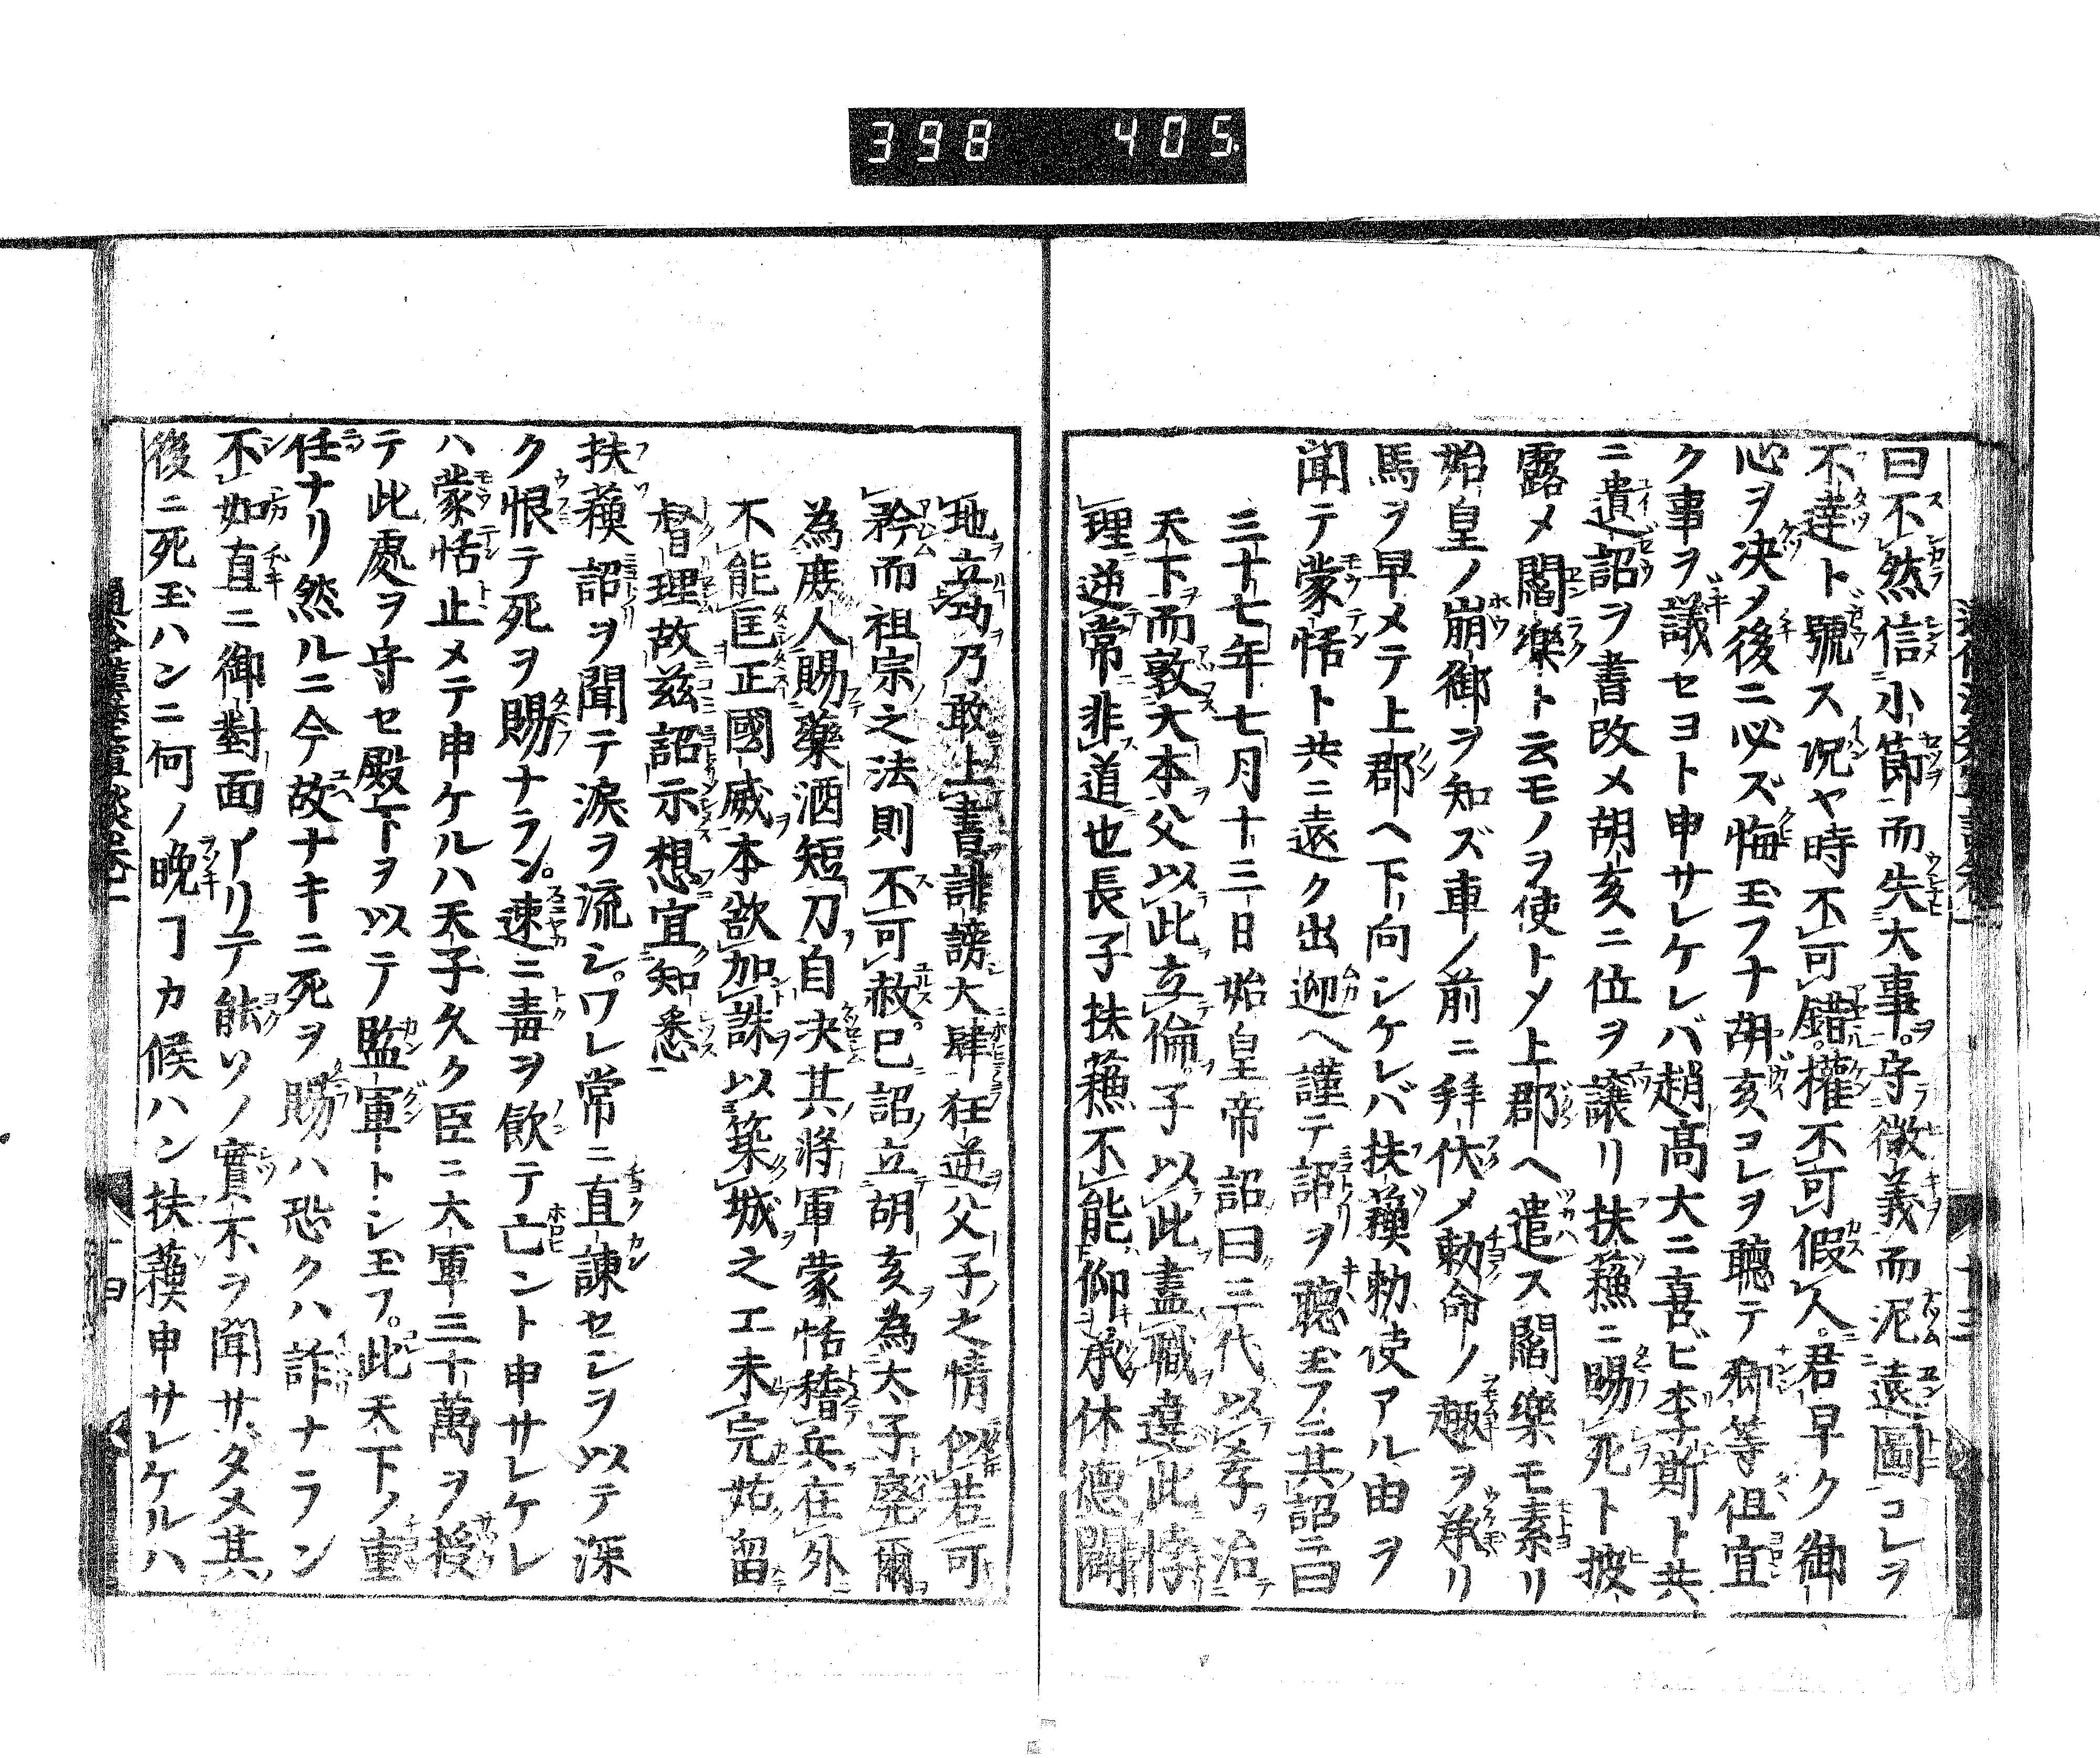 398 405
曰不然信小節而失大事守微義而泥遠圖コレヲ
不達ト號ス况ヤ時不可錯權不可假人君早ク御
心ヲ决メ後ニ必ズ悔玉フナ胡亥コレヲ聽テ卿等但宜
ク事ヲ議セヨト申サレケレバ趙高大ニ喜ビ李斯ト共
ニ遺詔ヲ書改メ胡亥ニ位ヲ譲リ扶蘓ニ賜死ト披
露メ閻樂ト云モノヲ使トメ上郡ヘ遣ス閻樂モ素リ
始皇ノ崩御ヲ知ズ車ノ前ニ拜伏メ勅命ノ趣ヲ承リ
馬ヲ早メテ上郡ヘ下向シケレバ扶蘓勅使アル由ヲ
聞テ蒙恬ト共ニ遠ク出迎ヘ謹テ詔ヲ聽玉フニ其詔ニ曰
三十七年七月十三日始皇帝詔曰三代以孝治
天下而敦大本父以此立倫子以此盡職違此悖
理逆常非道也長子扶蘓不能仰承休德闢
地立功乃敢上書誹謗大肆狂逆父子之情似若可
矜而祖宗之法則不可赦已詔立胡亥為太子廢爾
為庶人賜藥酒短刀自决其將軍蒙恬稽兵在外
不能匡正國威本欲加誅以築城之工未完姑留
督理故玆詔示想宜知悉
扶蘓詔ヲ聞テ淚ヲ流シワレ常ニ直諌セシヲ以テ深
ク恨テ死ヲ賜ナラン速ニ毒ヲ飮テ亡ント申サレケレ
ハ蒙恬止メテ申ケルハ天子久ク臣ニ大軍三十萬ヲ授
テ此處ヲ守セ殿下ヲ以テ監軍トシ玉フ此天下ノ重
任ナリ然ルニ今故ナキニ死ヲ賜ハ恐クハ詐ナラン
不如直ニ御對面アリテ能ソノ實不ヲ聞サタメ其
後ニ死玉ハンニ何ノ晩ヿカ候ハン扶蘓申サレケルハ
十三